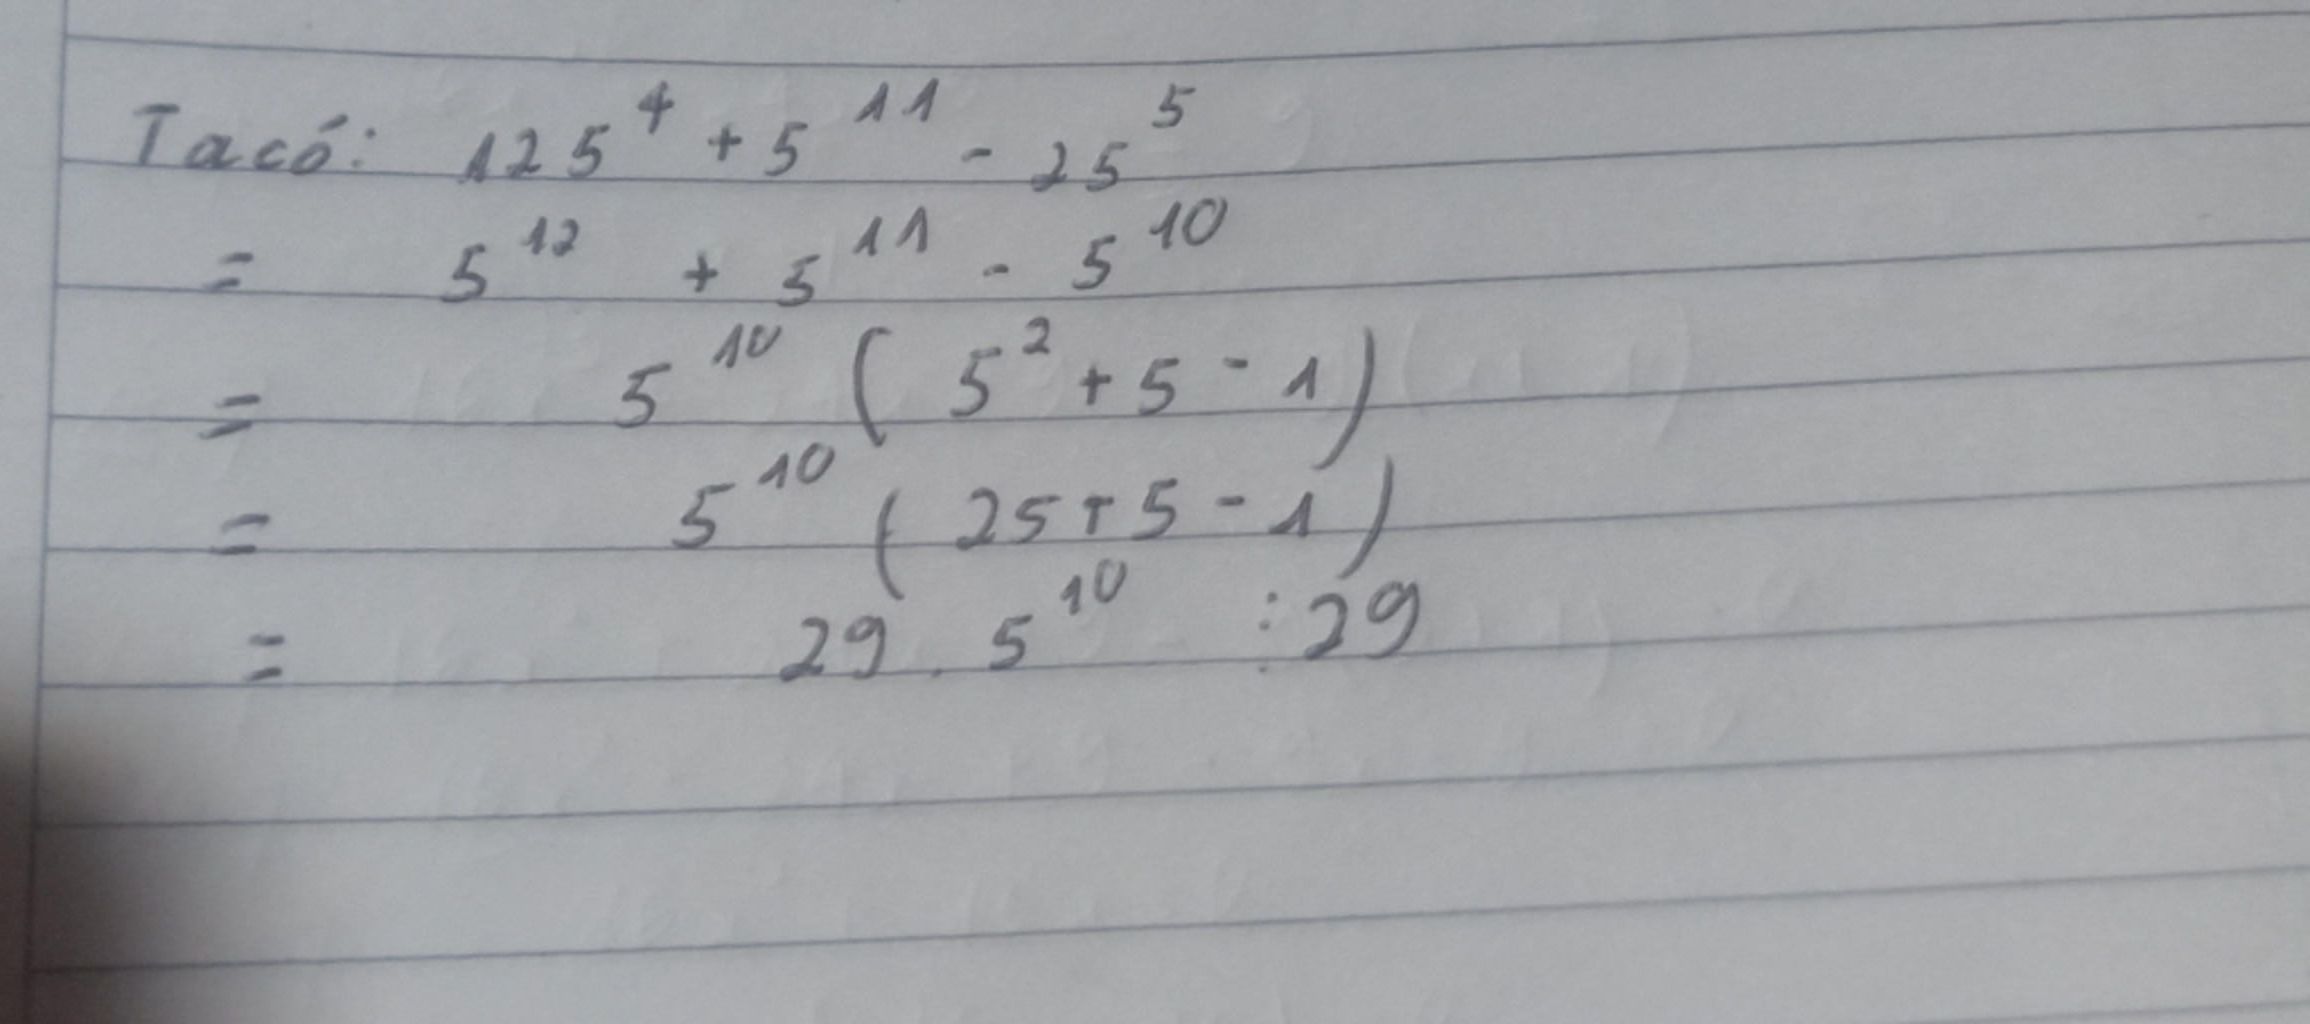 Ta có: 125⁴ + 5¹¹ - 25⁵
= 5¹² + 5¹¹ - 5¹⁰
= 5¹⁰ ( 5² + 5 - 1 )
= 5¹⁰ ( 25 + 5 - 1 )
= 29 . 5¹⁰ ⋮ 29